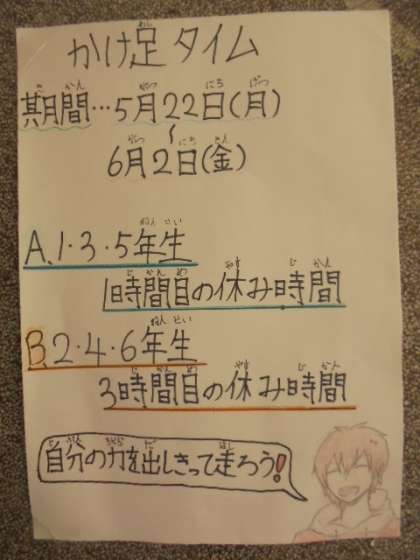 かけ足タイム
期間…5月22日(月)
~
6月2日(金)
A.1・3・5年生
1時間目の休み時間
B.2・4・6年生
3時間目の休み時間
自分の力を出しきって走ろう!